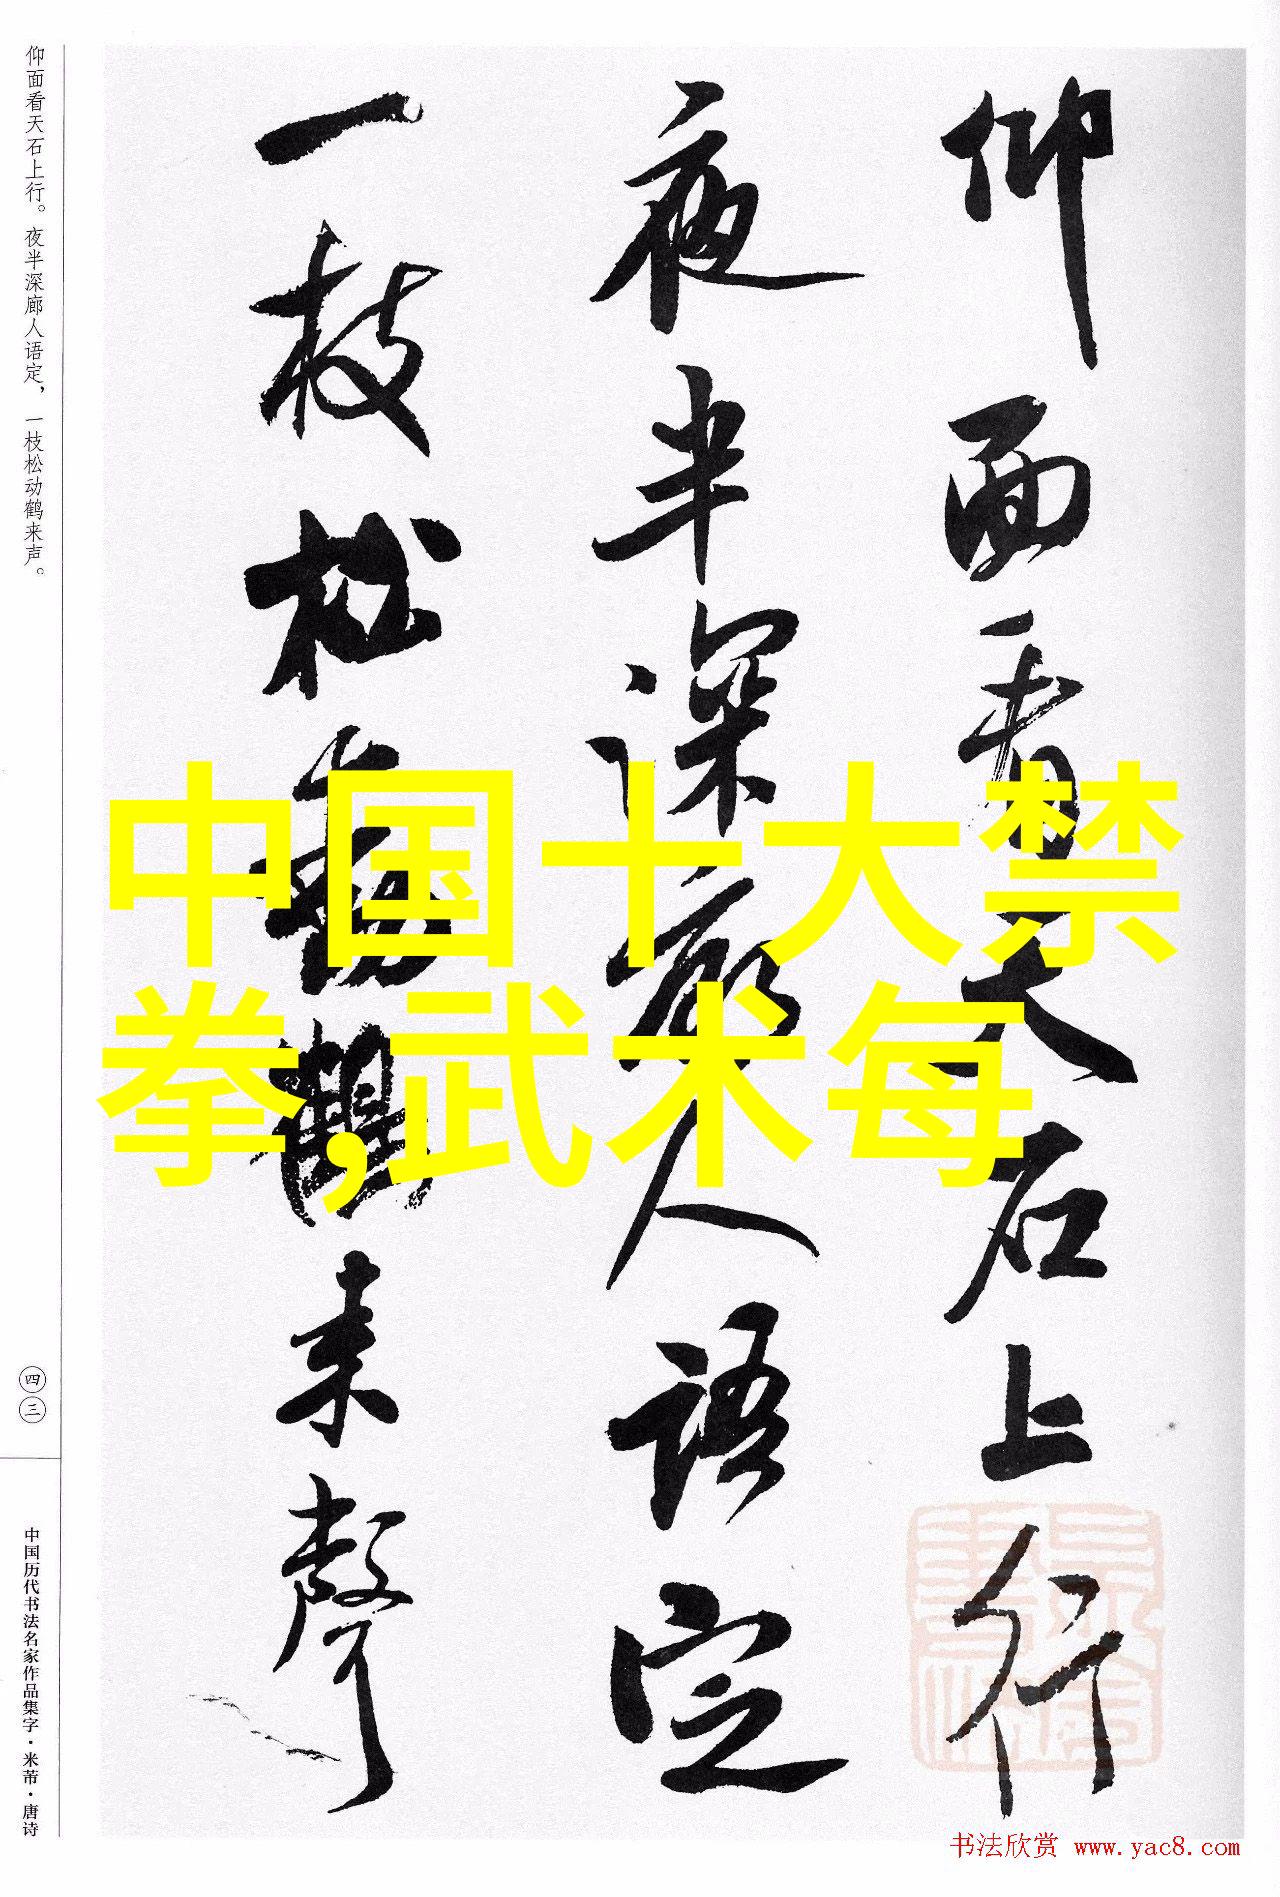 仰面看天石上行
夜半深廊人语定
一枝松動鶴来聲
仰面看天石上行。夜半深廊人语定，一枝松动鹤来声。
四三
中国历代书法名家作品集字·米芾·唐诗
中国十大禁
拳,武术每
书法欣赏 www.yac8.com